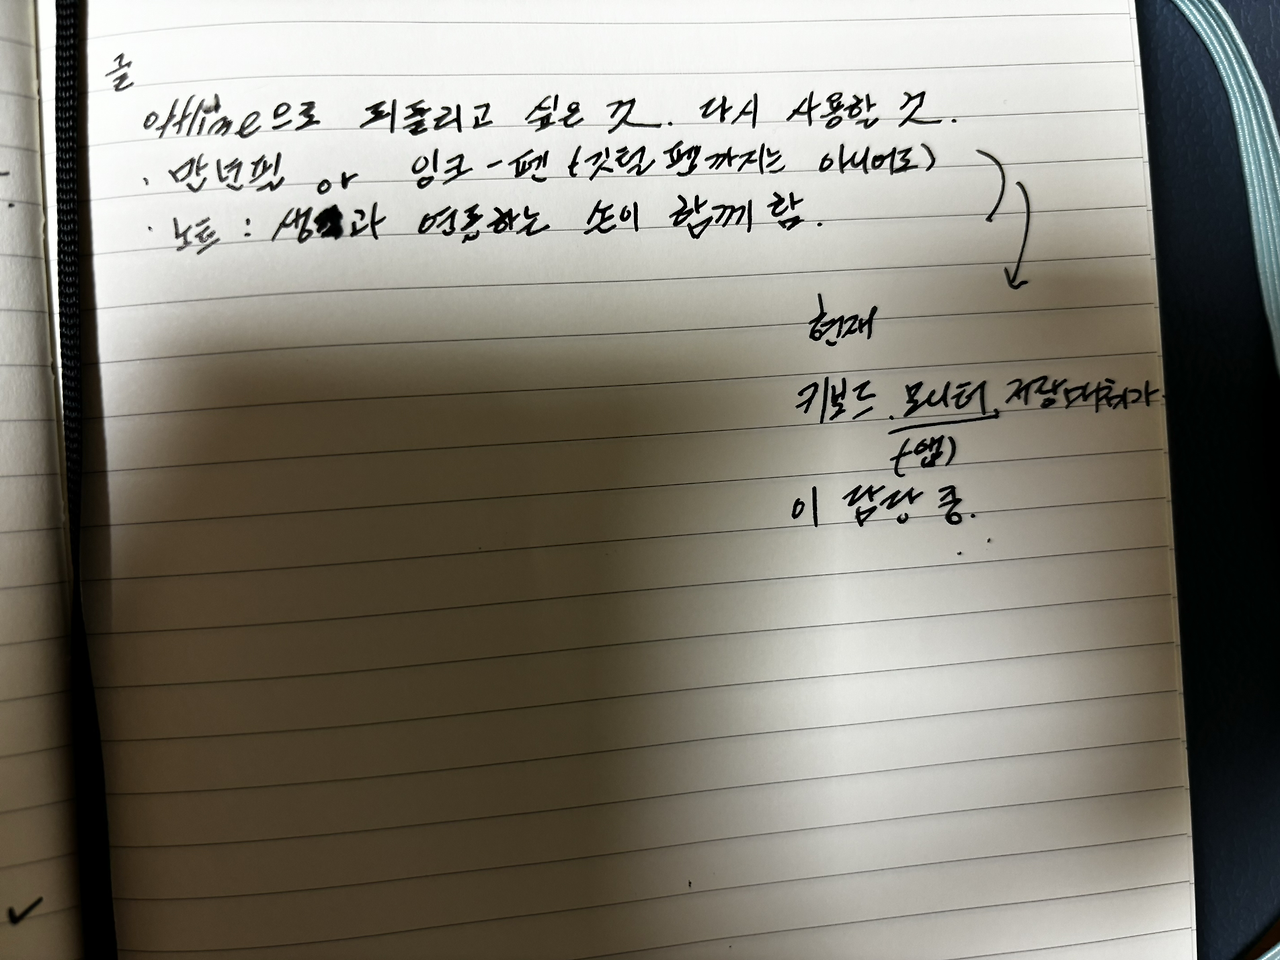 글
offline으로 되돌리고 싶은 것. 다시 사용할 것.
· 만년필 or 잉크-펜 (깃털 펜까지는 아니어도)
· 노트 : 생각과 연동하는 손이 함께 함.
현재
키보드, 모니터, 저장매체가
(앱)
이 담당 중.